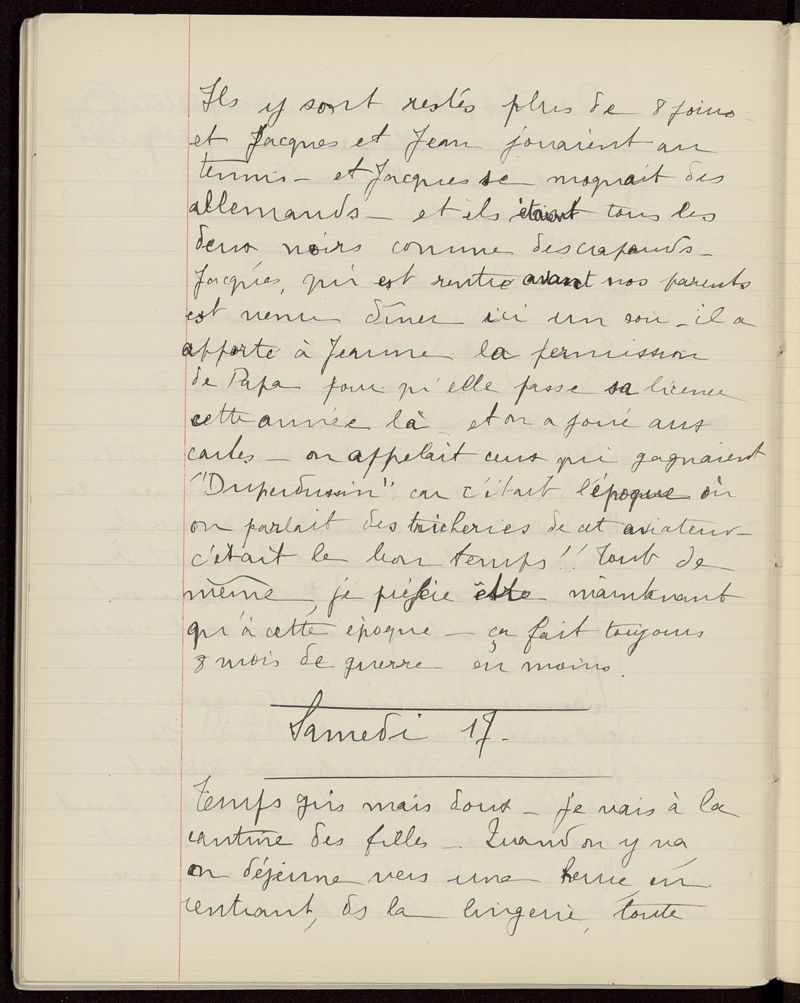 Ils y sont restés plus de 8 jours
et Jacques et Jean jouaient au
tennis – et Jacques se moquait des
allemands – et ils étaient tous les
deux noirs comme des crapauds –
Jacques, qui est rentré avant nos parents
est venu dîner ici un soir – il a
apporté à Jeanne la permission
de Papa pour qu'elle passe sa licence
cette année là – et on a joué aux
cartes – on appelait ceux qui gagnaient
"Duperdussin" car c'était l'époque où
on parlait des tricheries de cet aviateur –
c'était le bon temps!! Tout de
même, je préfère être maintenant
qu'à cette époque – ça fait toujours
8 mois de guerre en moins.
Samedi 17.
Temps gris mais doux – je vais à la
cantine des filles – Quand on y va,
on déjeune vers une heure, en
rentrant, ds la lingerie, toute